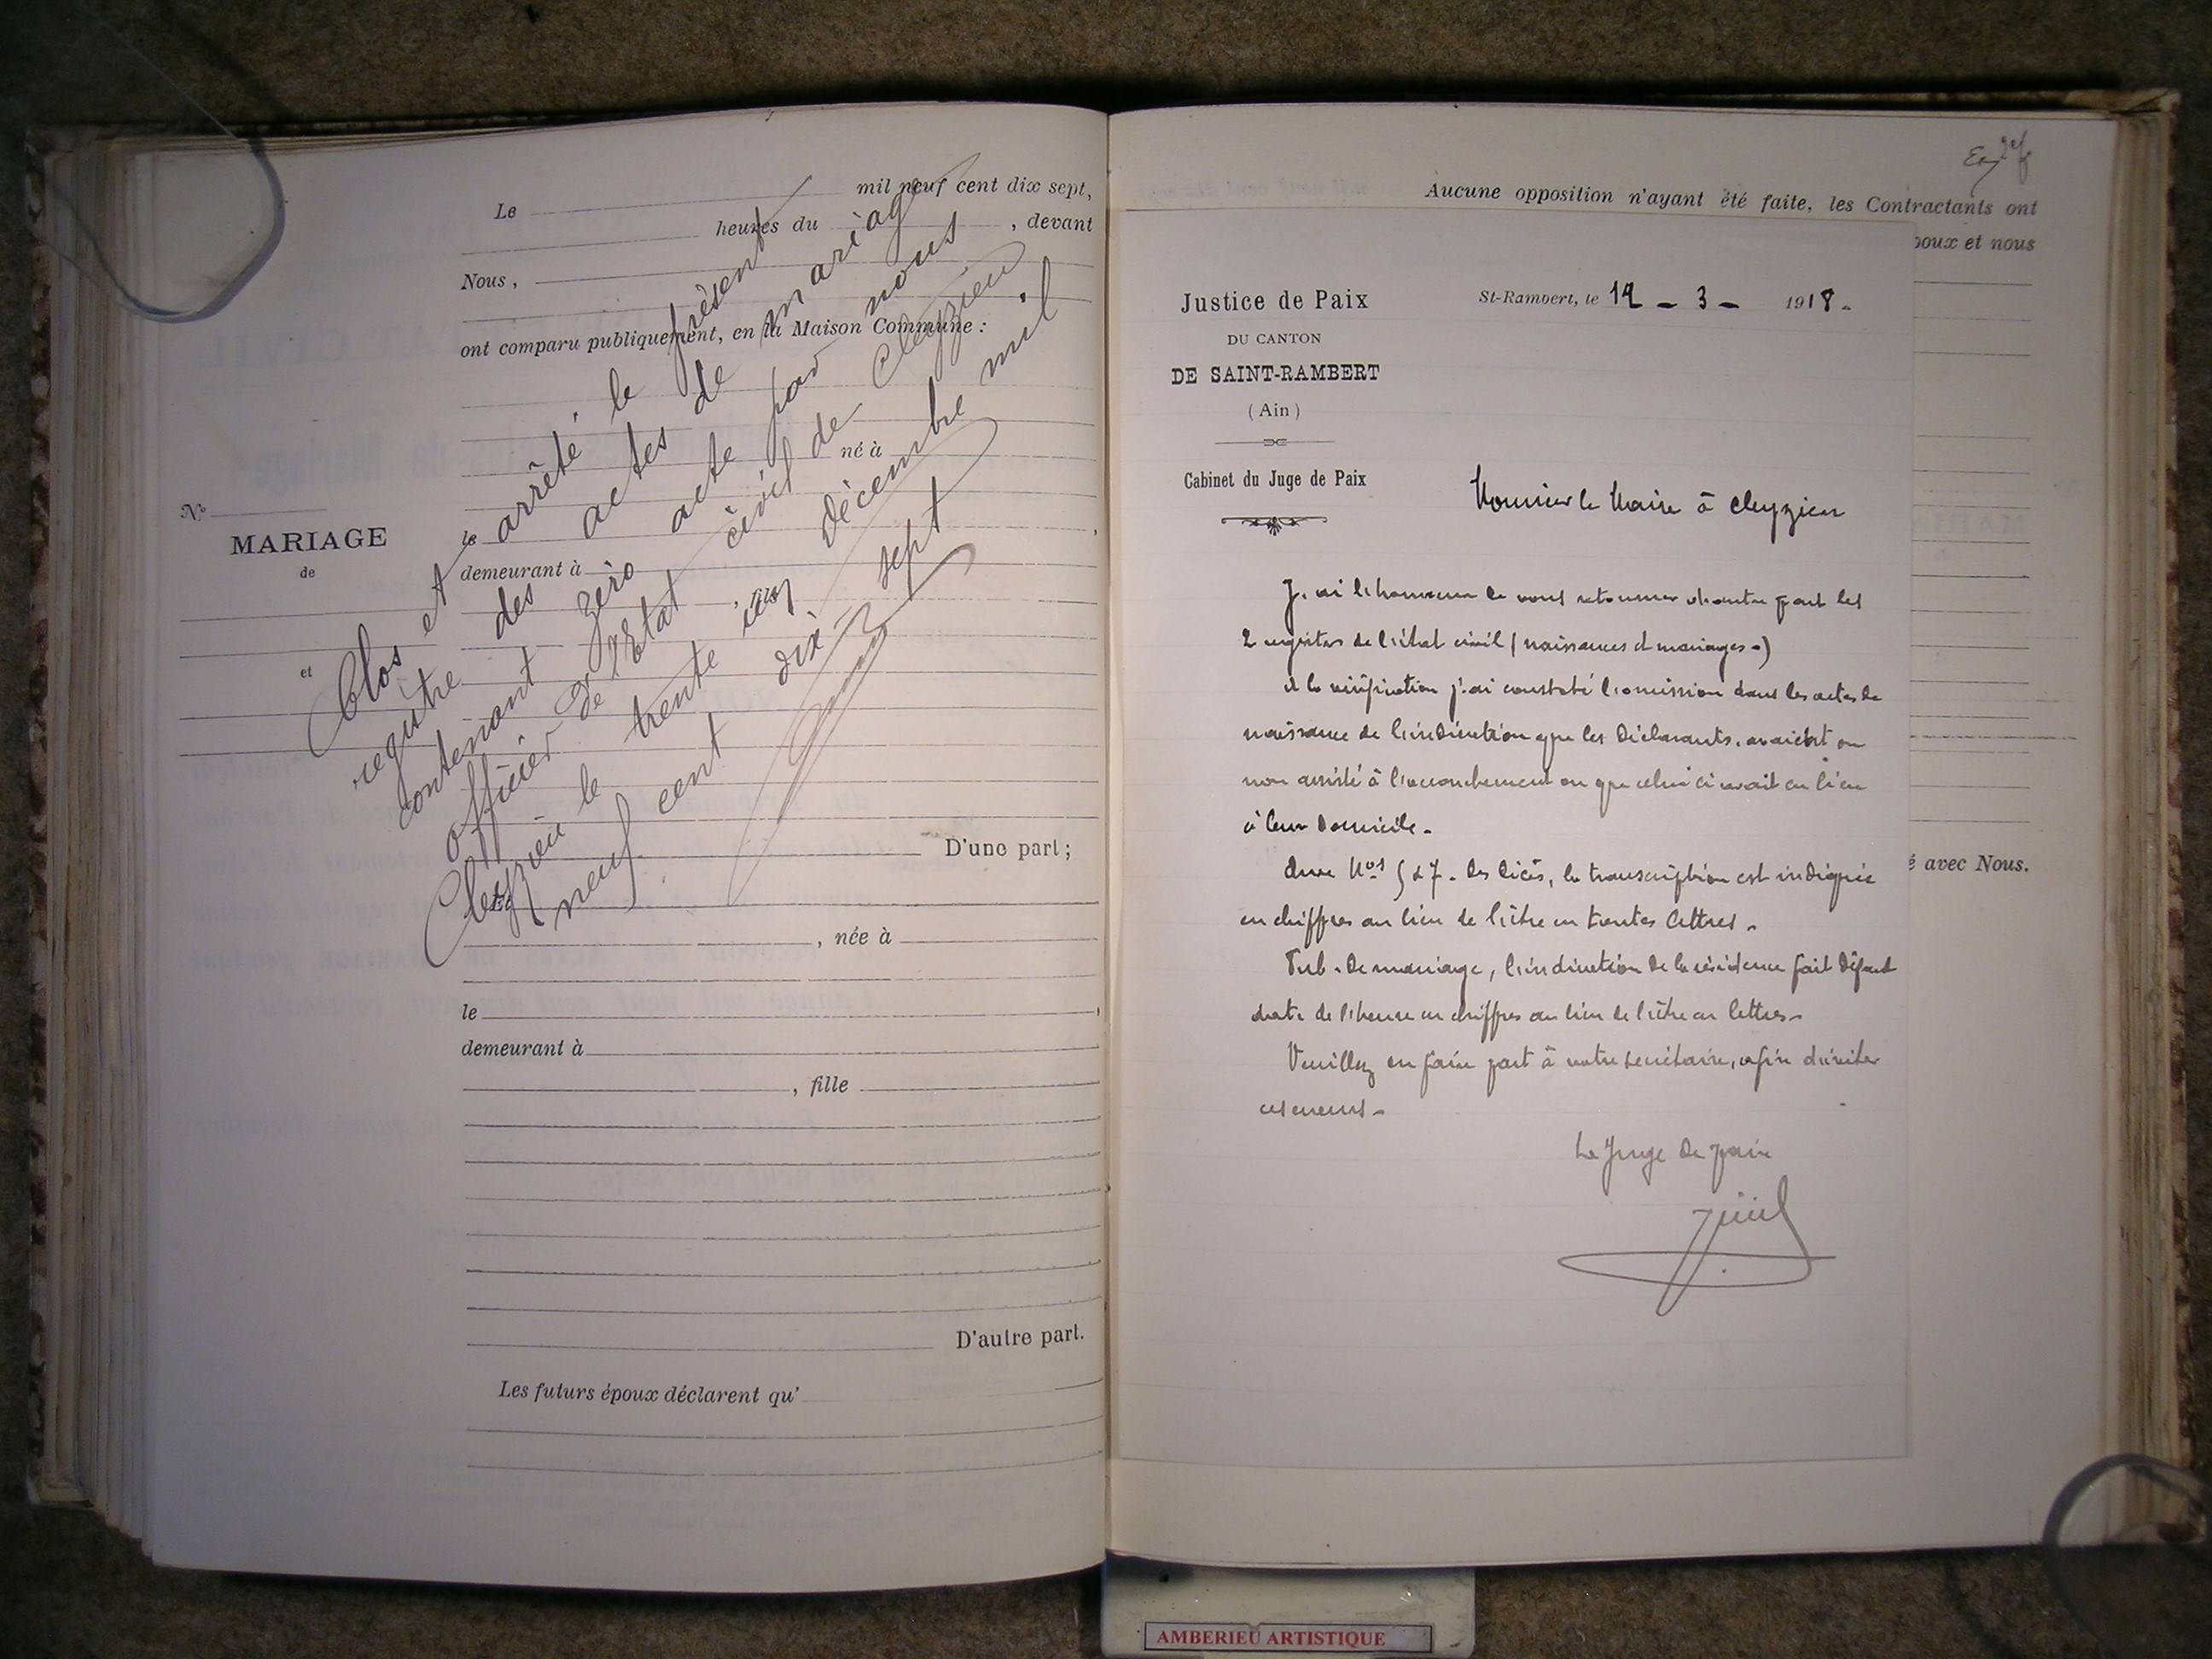 Le mil neuf cent dix sept,
heures du , devant
Nous,
ont comparu publiquement, en la Maison Commune :
né à
le
demeurant à
, fils
No
MARIAGE
de
et
Clos et arrêté le présent
registre des actes de mariage
contenant zéro acte par nous
officier de l'Etat civil de Cleyzieu
Cleyzieu le trente un décembre mil
neuf cent dix sept
D'une part ;
Et
, née à
le
demeurant à
, fille
D'autre part.
Les futurs époux déclarent qu'
Aucune opposition n'ayant été faite, les Contractants ont
poux et nous
é avec Nous.
Justice de Paix
DU CANTON
DE SAINT-RAMBERT
(Ain)
Cabinet du Juge de Paix
St-Rambert, le 12 - 3 - 1918.
Monsieur le Maire à Cleyzieu
J'ai l'honneur de vous retourner d'autre part les
2 registres de l'état civil (naissances et mariages-)
A la vérification j'ai constaté l'omission dans les actes de
naissance de l'indication que les Déclarants avaient ou
non assisté à l'accouchement ou que celui ci avait eu lieu
à leur Domicile.
Nos 5 & 7. des Décès, la transcription est indiquée
en chiffres au lieu de l'être en toutes lettres.
Pub. de mariage, l'indication de la résidence fait défaut
date de l'heure en chiffres au lieu de l'être en lettres.
Veuillez en faire part à votre secrétaire, afin d'éviter
ces erreurs.
Le Juge de paix
AMBERIEU ARTISTIQUE